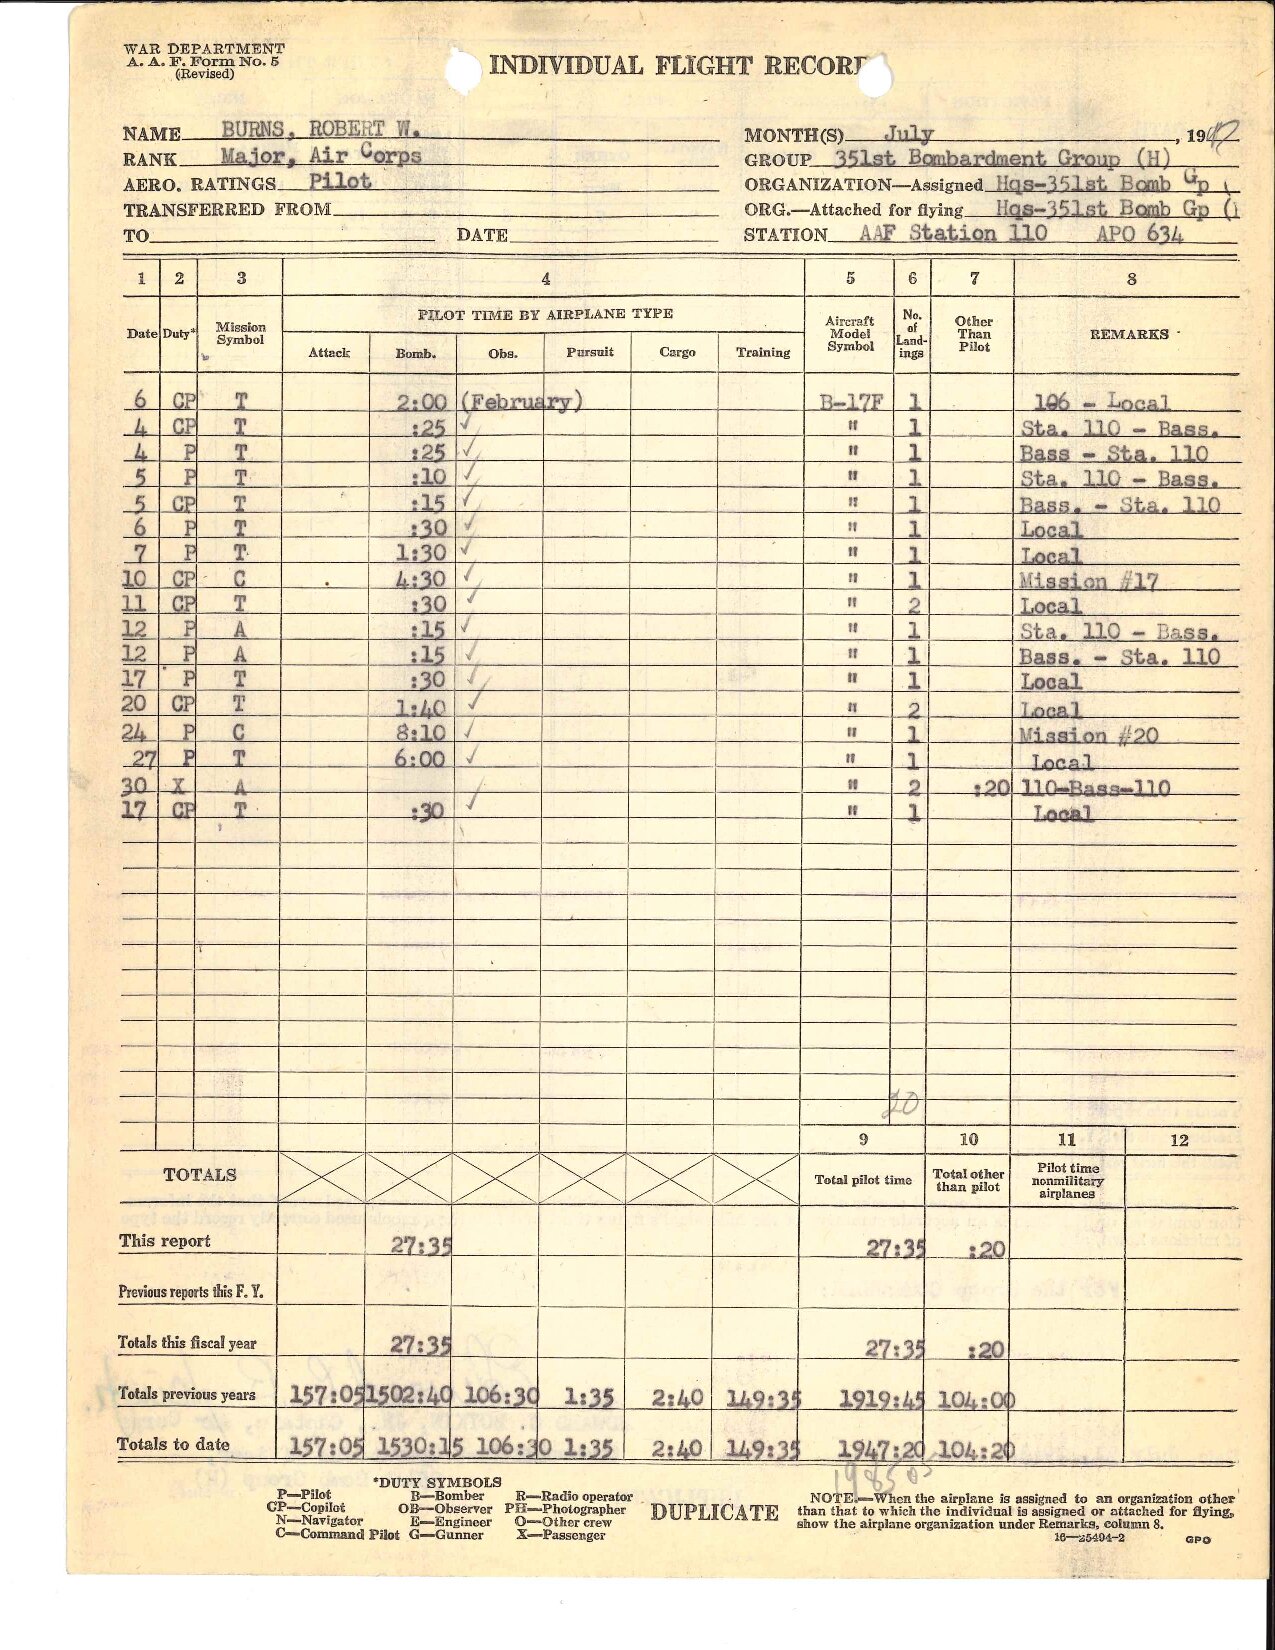 WAR DEPARTMENT
A. A. F. Form No. 5
(Revised)
INDIVIDUAL FLIGHT RECORD
NAME BURNS, ROBERT W.
RANK Major, Air Corps
AERO. RATINGS Pilot
TRANSFERRED FROM
TO DATE
MONTH(S) July, 19
GROUP 351st Bombardment Group (H)
ORGANIZATION—Assigned Hqs-351st Bomb Gp (
ORG.—Attached for flying Hqs-351st Bomb Gp (
STATION AAF Station 110 APO 634
1 2 3 4 5 6 7 8
Date Duty* Mission Symbol PILOT TIME BY AIRPLANE TYPE Aircraft Model Symbol No. of Land-ings Other Than Pilot REMARKS
Attack Bomb. Obs. Pursuit Cargo Training
6 CP T 2:00 (February) B-17F 1 106 - Local
4 CP T :25 ✓ " 1 Sta. 110 - Bass.
4 P T :25 ✓ " 1 Bass - Sta. 110
5 P T :10 ✓ " 1 Sta. 110 - Bass.
5 CP T :15 ✓ " 1 Bass. - Sta. 110
6 P T :30 ✓ " 1 Local
7 P T 1:30 ✓ " 1 Local
10 CP C 4:30 ✓ " 1 Mission #17
11 CP T :30 ✓ " 2 Local
12 P A :15 ✓ " 1 Sta. 110 - Bass.
12 P A :15 ✓ " 1 Bass. - Sta. 110
17 P T :30 ✓ " 1 Local
20 CP T 1:40 ✓ " 2 Local
24 P C 8:10 ✓ " 1 Mission #20
27 P T 6:00 ✓ " 1 Local
30 X A " 2 :20 110-Bass-110
17 CP T :30 ✓ " 1 Local
20
9 10 11 12
TOTALS Total pilot time Total other than pilot Pilot time nonmilitary airplanes
This report 27:35 27:35 :20
Previous reports this F. Y.
Totals this fiscal year 27:35 27:35 :20
Totals previous years 157:05 1502:40 106:30 1:35 2:40 149:35 1919:45 104:00
Totals to date 157:05 1530:15 106:30 1:35 2:40 149:35 1947:20 104:20
*DUTY SYMBOLS
P—Pilot B—Bomber R—Radio operator
CP—Copilot OB—Observer PH—Photographer
N—Navigator E—Engineer O—Other crew
C—Command Pilot G—Gunner X—Passenger
DUPLICATE
NOTE.—When the airplane is assigned to an organization other
than that to which the individual is assigned or attached for flying,
show the airplane organization under Remarks, column 8.
16—25494-2 GPO